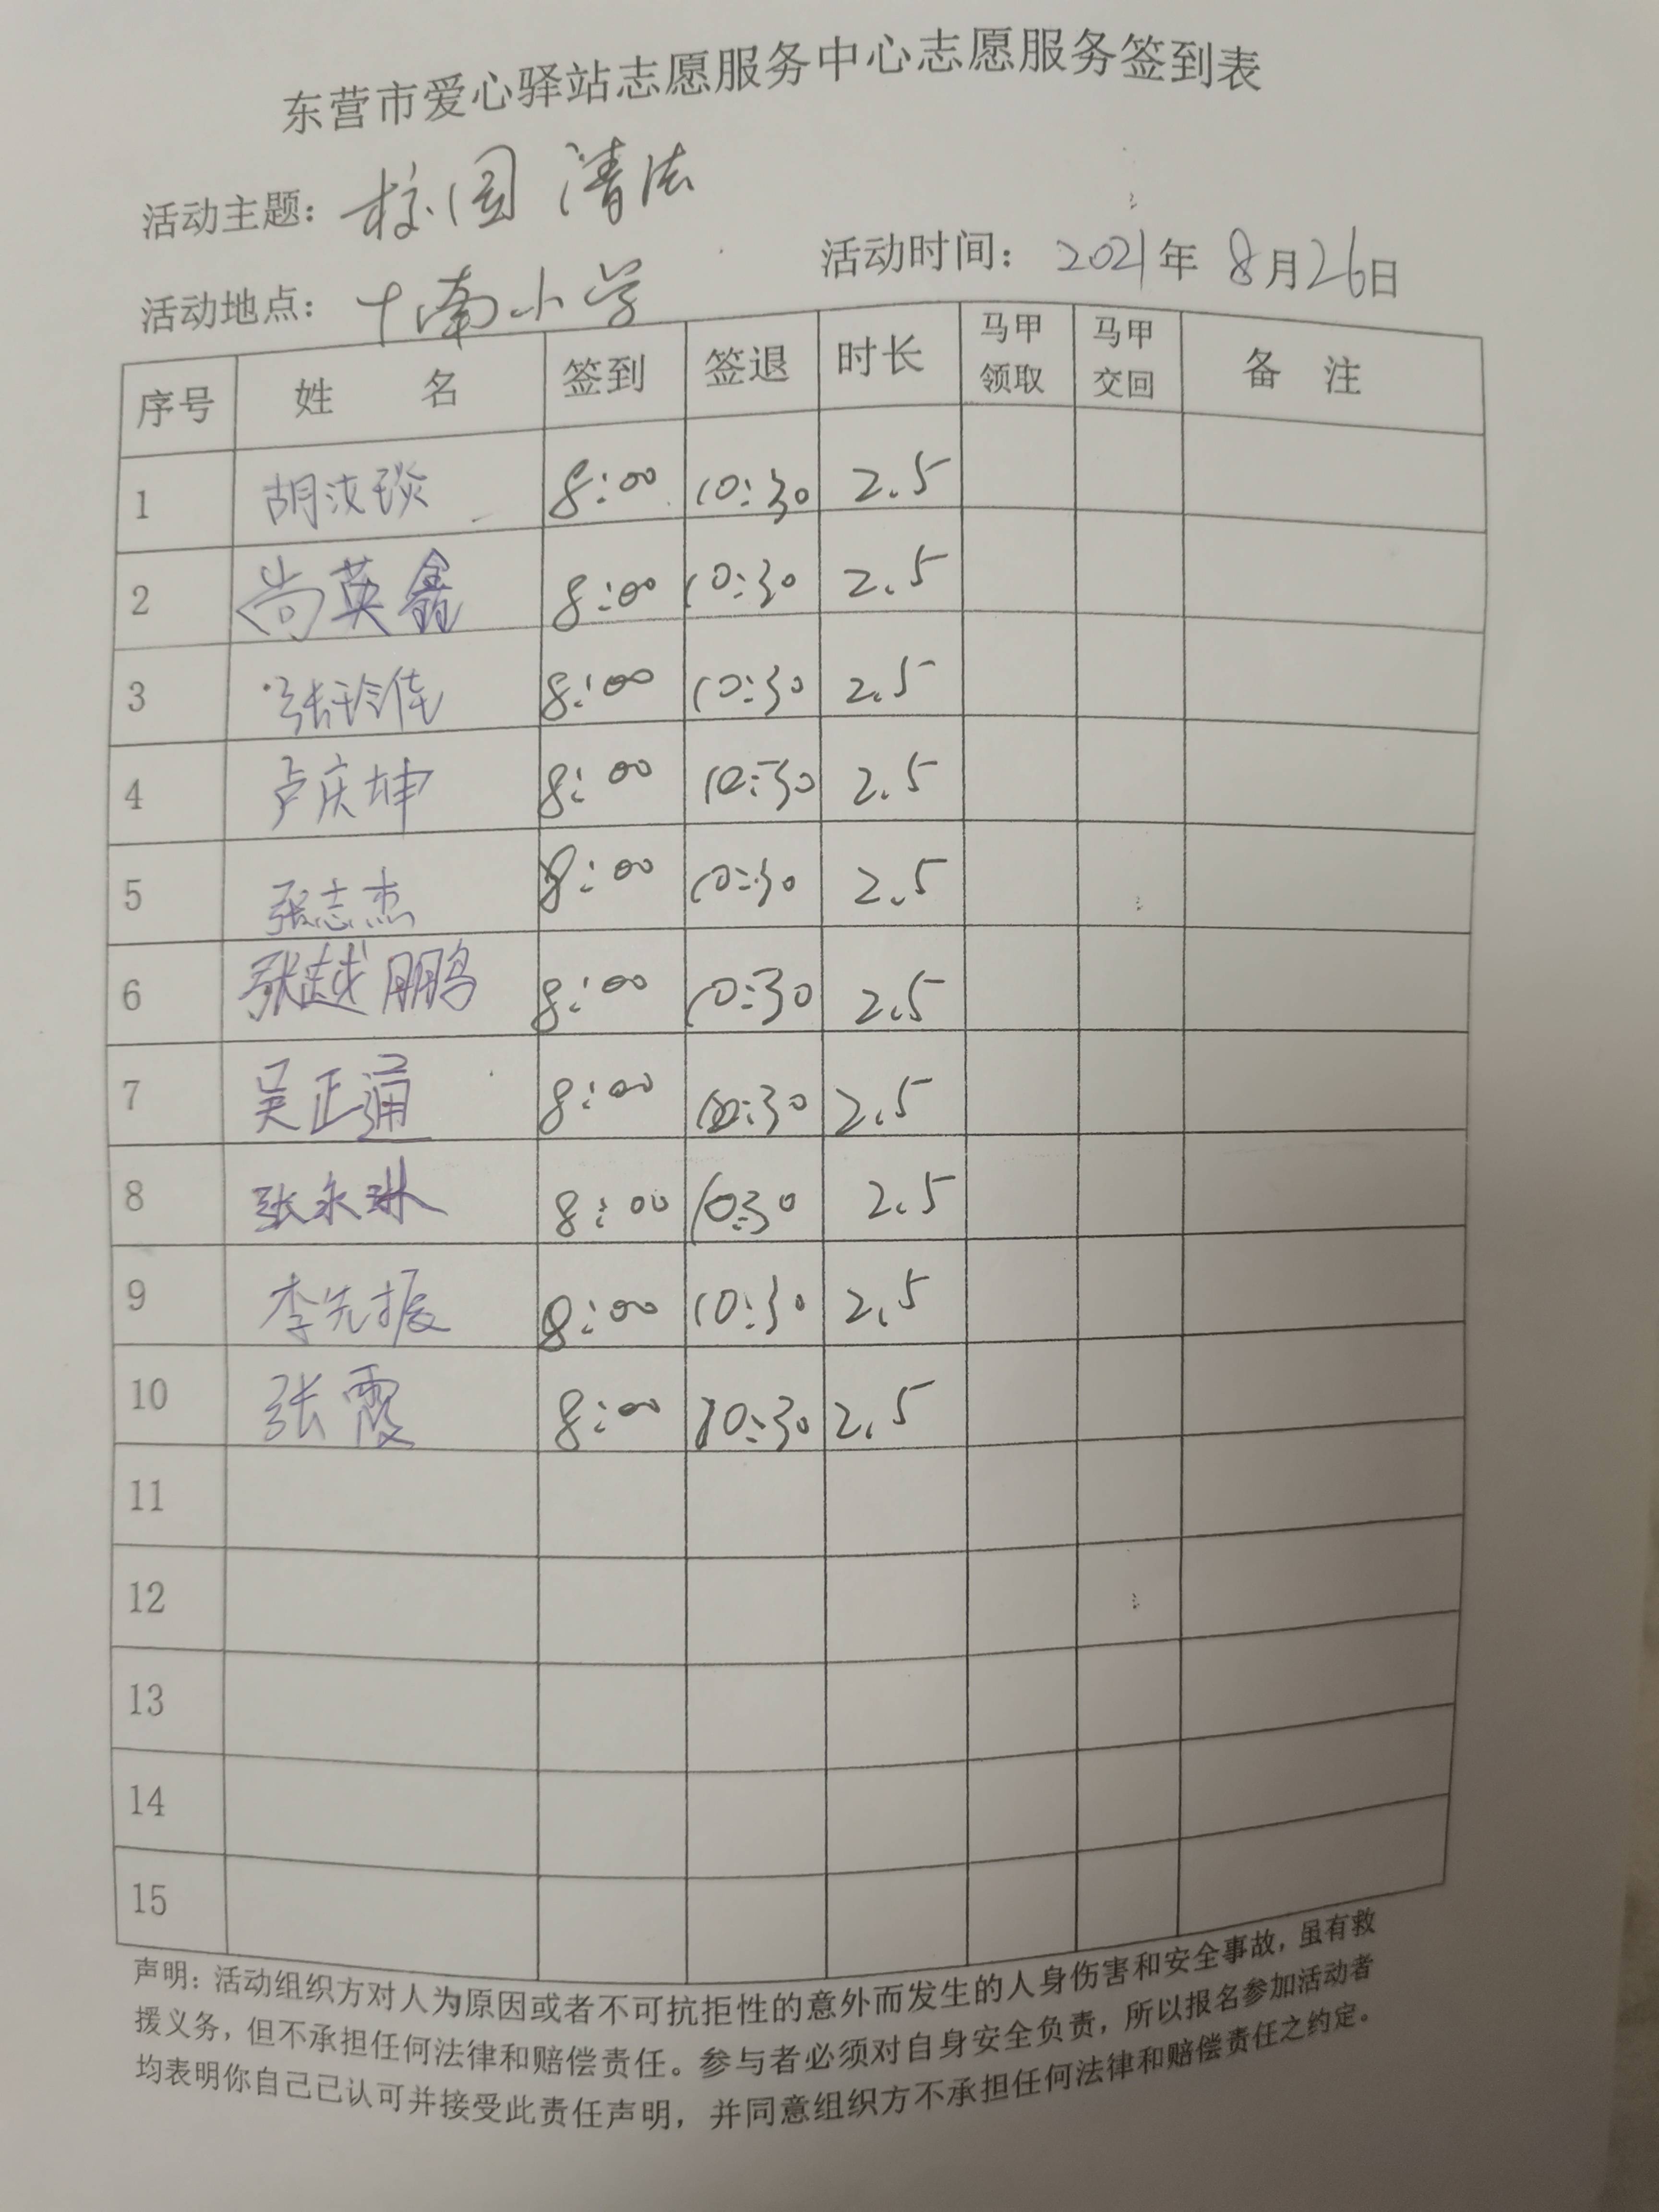 东营市爱心驿站志愿服务中心志愿服务签到表
活动主题：校园清洁
活动地点：十南小学 活动时间：2021年8月26日
序号 姓名 签到 签退 时长 马甲领取 马甲交回 备注
1 胡汶琰 8:00 10:30 2.5
2 尚英鑫 8:00 10:30 2.5
3 张玲佳 8:00 10:30 2.5
4 卢庆坤 8:00 10:30 2.5
5 张志杰 8:00 10:30 2.5
6 张越鹏 8:00 10:30 2.5
7 吴正涌 8:00 10:30 2.5
8 张永琳 8:00 10:30 2.5
9 李先振 8:00 10:30 2.5
10 张霞 8:00 10:30 2.5
11
12
13
14
15
声明：活动组织方对人为原因或者不可抗拒性的意外而发生的人身伤害和安全事故，虽有救
援义务，但不承担任何法律和赔偿责任。参与者必须对自身安全负责，所以报名参加活动者
均表明你自己已认可并接受此责任声明，并同意组织方不承担任何法律和赔偿责任之约定。